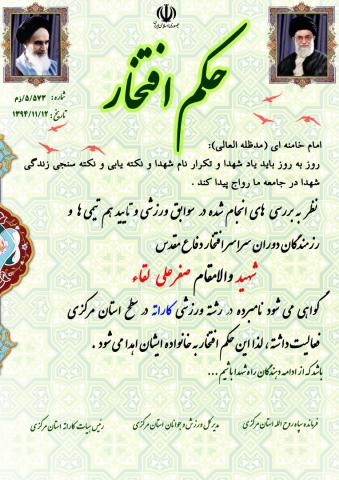 جمهوری اسلامی ایران
شماره: ۵/۵۷۳/زم
تاریخ: ۱۳۹۴/۱۱/۱۲
حکم افتخار
امام خامنه ای (مدظله العالی):
روز به روز باید یاد شهدا و تکرار نام شهدا و نکته یابی و نکته سنجی زندگی
شهدا در جامعه ما رواج پیدا کند .
نظر به بررسی های انجام شده در سوابق ورزشی و تایید هم تیمی ها و
رزمندگان دوران سراسر افتخار دفاع مقدس
شهید والامقام صفرعلی لقاء
گواهی می شود نامبرده در رشته ورزشی کاراته در سطح استان مرکزی
فعالیت داشته ، لذا این حکم افتخار به خانواده ایشان اهدا می شود .
باشد که از ادامه دهندگان راه شهدا باشیم ...
فرمانده سپاه روح الله استان مرکزی
مدیر کل ورزش و جوانان استان مرکزی
رئیس هیات کاراته استان مرکزی